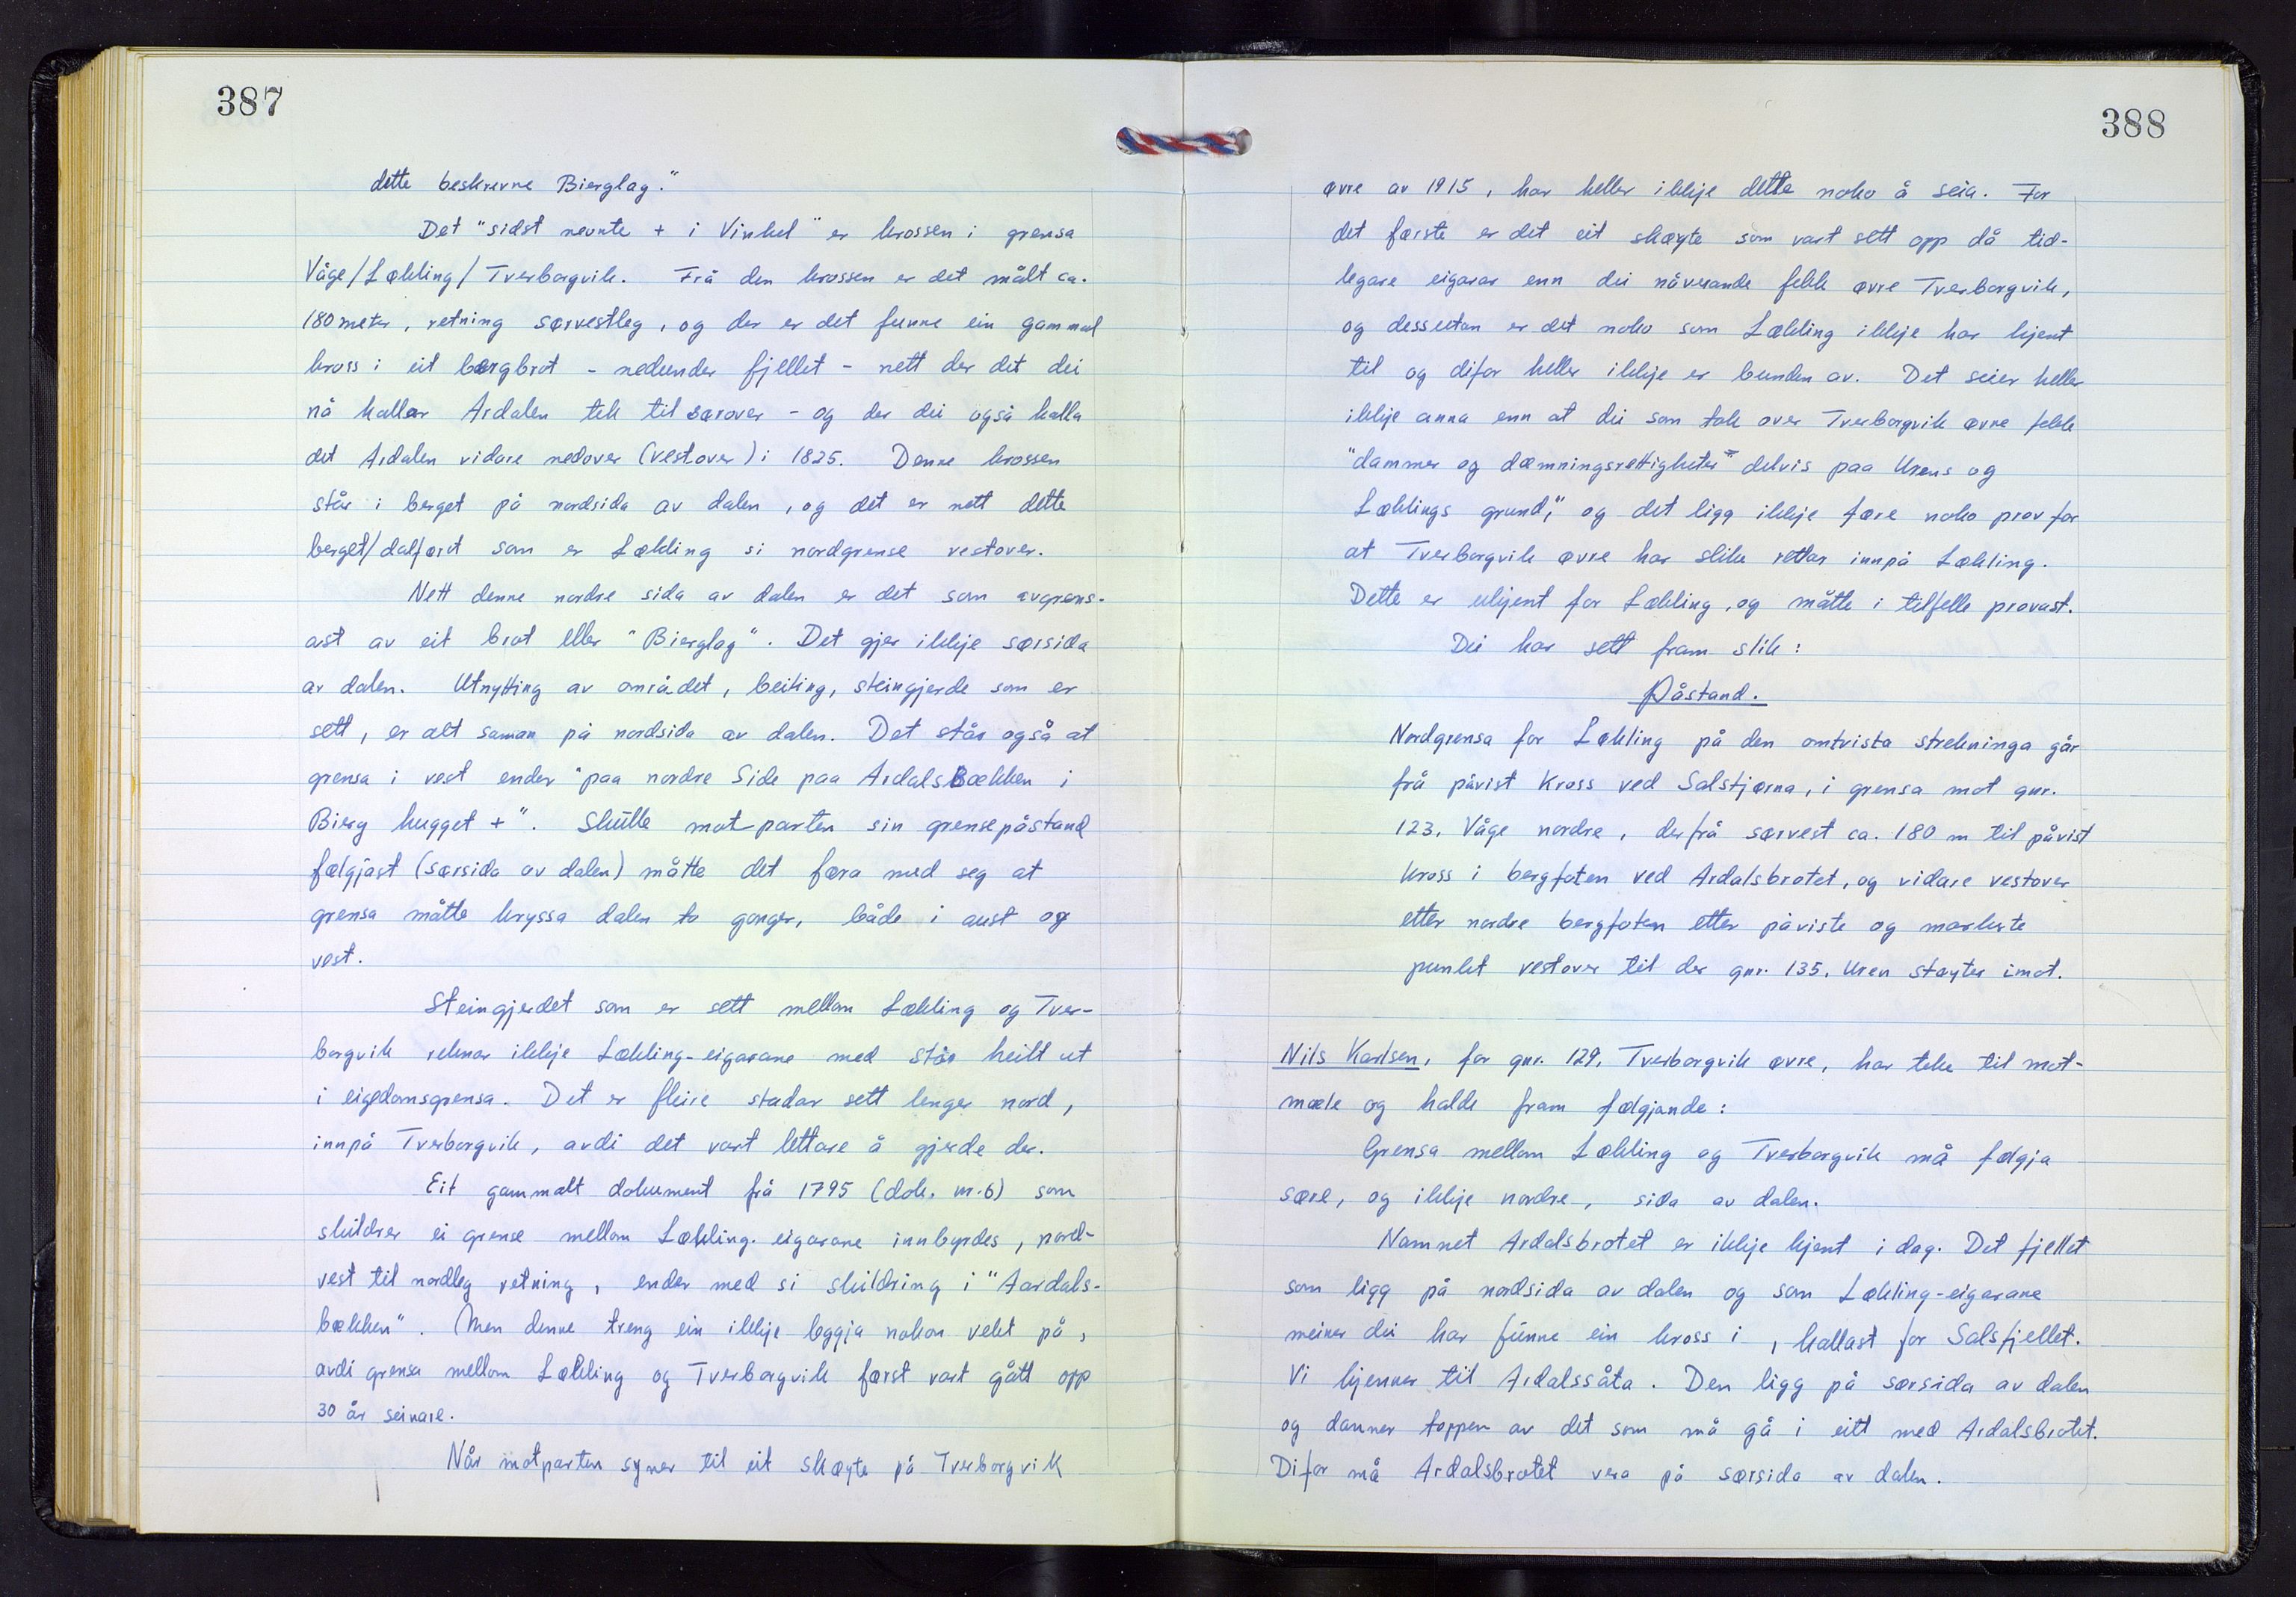 387
dette beskrevne Bierglag."
Det "sidst nevnte + i Vinkel" er krossen i grensa
Våge/Løkling/Tverborgvik. Frå den krossen er det målt ca.
180 meter, retning sørvestleg, og der er det funne ein gammal
kross i eit bergbrot - nedunder fjellet - nett der det dei
nå kallar Ardalen tek til sørover - og der dei også kalla
det Ardalen vidare nedover (vestover) i 1825. Denne krossen
står i berget på nordsida av dalen, og det er nett dette
berget/dalføret som er Løkling si nordgrense vestover.
Nett denne nordre sida av dalen er det som avgrens-
ast av eit brot eller "Bierglag". Det gjer ikkje sørsida
av dalen. Utnytting av området, beiting, steingjerde som er
sett, er alt saman på nordsida av dalen. Det står også at
grensa i vest ender "paa nordre Side paa ArdalsBækken i
Bierg hugget +". Skulle motparten sin grensepåstand
følgjast (sørsida av dalen) måtte det føra med seg at
grensa måtte kryssa dalen to gonger, både i aust og
vest.
Steingjerdet som er sett mellom Løkling og Tver-
borgvik reknar ikkje Løkling-eigarane med står heilt ut
i eigedomsgrensa. Det er fleire stadar sett lenger nord,
innpå Tverborgvik, avdi det vart lettare å gjerde der.
Eit gammalt dokument frå 1795 (dok. nr. 6) som
skildrer ei grense mellom Løkling-eigarane innbyrdes, nord-
vest til nordleg retning, ender med si skildring i "Aardals-
bækken". Men denne treng ein ikkje leggja nokon vekt på,
avdi grensa mellom Løkling og Tverborgvik først vart gått opp
30 år seinare.
Når motparten syner til eit skøyte på Tverborgvik
388
øvre av 1915, har heller ikkje dette noko å seia. For
det første er det eit skøyte som vart sett opp då tid-
legare eigarar enn dei nåverande fekk øvre Tverborgvik,
og dessutan er det noko som Løkling ikkje har kjent
til og difor heller ikkje er bunden av. Det seier heller
ikkje anna enn at dei som tok over Tverborgvik øvre fekk
"dammer og dæmningsrettigheter" delvis paa Urens og
Løklings grund", og det ligg ikkje føre noko prov for
at Tverborgvik øvre har slike rettar innpå Løkling.
Dette er ukjent for Løkling, og måtte i tilfelle provast.
Dei har sett fram slik:
Påstand.
Nordgrensa for Løkling på den omtvista strekninga går
frå påvist Kross ved Salstjørna, i grensa mot gnr.
123, Våge nordre, derfrå sørvest ca. 180 m til påvist
kross i bergfoten ved Ardalsbrotet, og vidare vestover
etter nordre bergfoten etter påviste og markerte
punkt vestover til der gnr. 135, Uren støyter imot.
Nils Karlsen, for gnr. 129, Tverborgvik øvre, har teke til mot-
mæle og halde fram følgjande:
Grensa mellom Løkling og Tverborgvik må følgja
søre, og ikkje nordre, sida av dalen.
Namnet Ardalsbrotet er ikkje kjent i dag. Det fjellet
som ligg på nordsida av dalen og som Løkling-eigarane
meiner dei har funne ein kross i, kallast for Salsfjellet.
Vi kjenner til Ardalssåta. Den ligg på sørsida av dalen
og danner toppen av det som må gå i eitt med Ardalsbrotet.
Difor må Ardalsbrotet vera på sørsida av dalen.